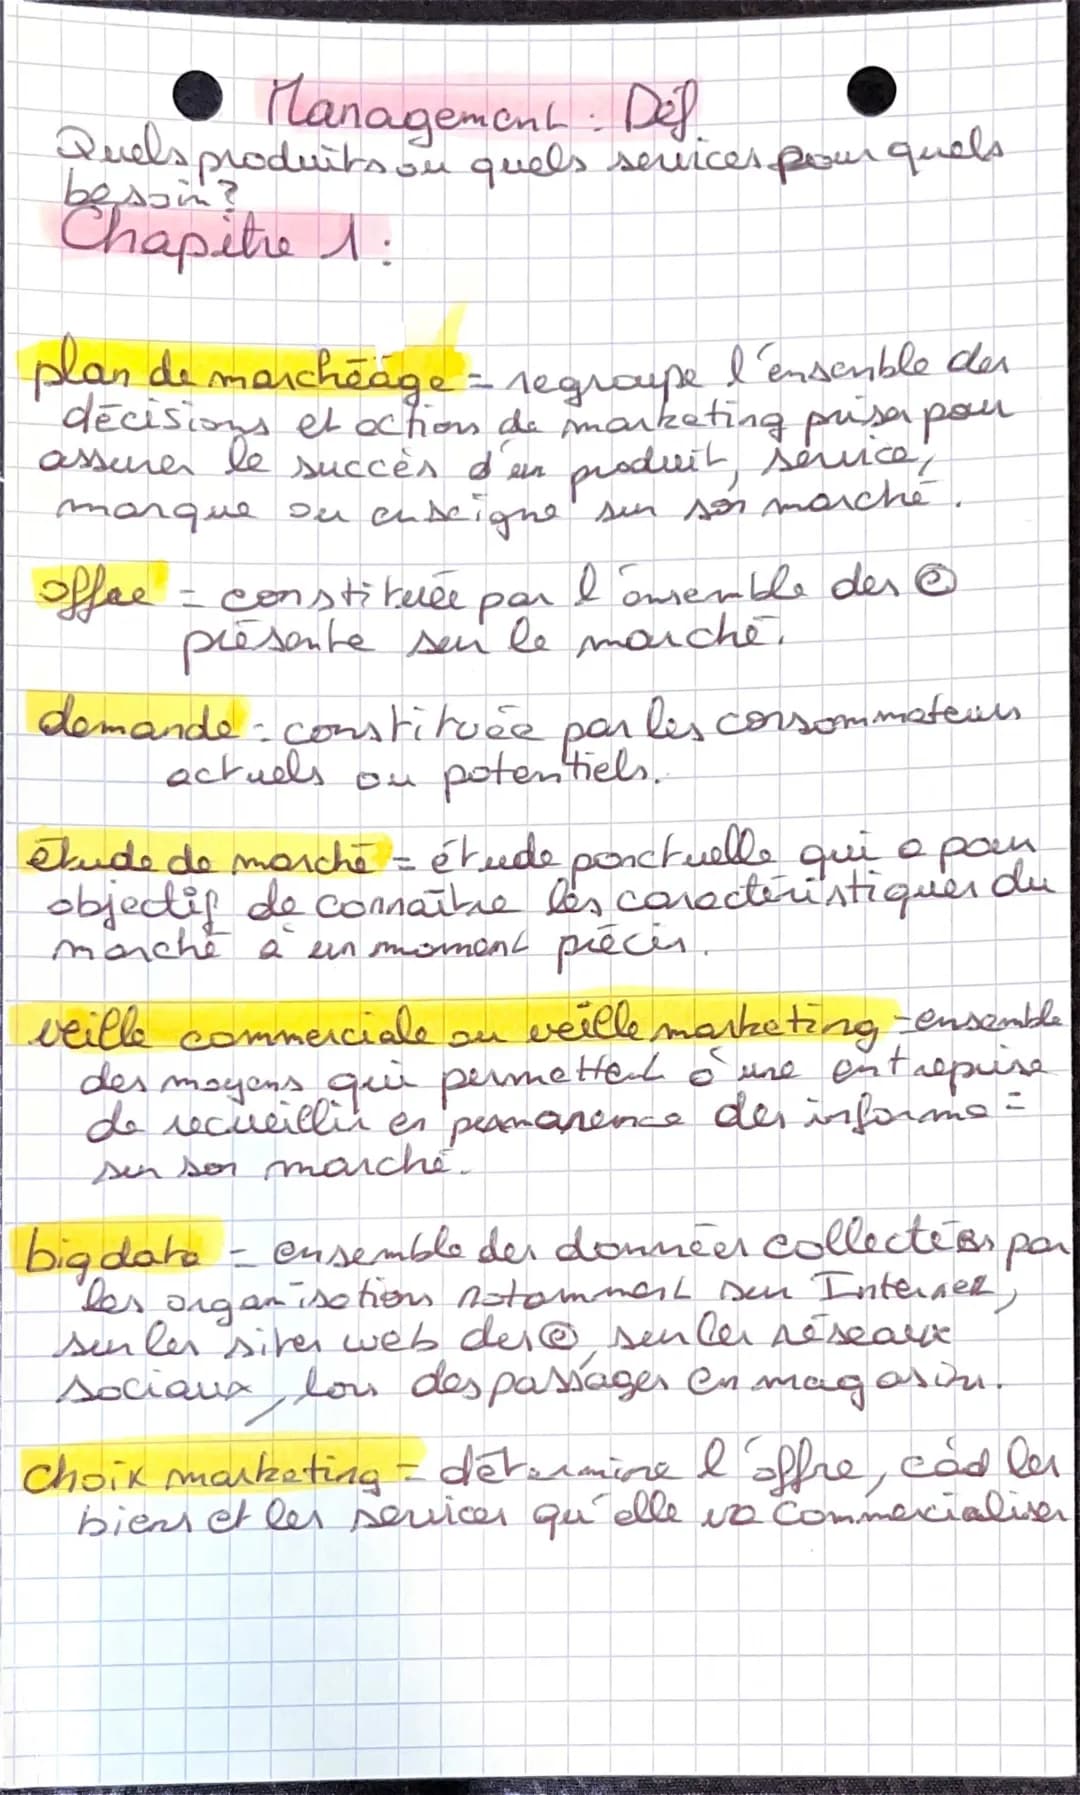 Management : Déf
Quels produits ou quels services pour quels
besoin ?
Chapitre 1 :
plan de marchéage = regroupe l'ensemble des
décisions et action de marketing prises pour
assurer le succès d'un produit, service,
marque ou enseigne sur son marché.
offre = constituée par l'ensemble des ⓔ
présente sur le marché.
demande = constituée par les consommateurs
actuels ou potentiels.
étude de marché = étude ponctuelle qui a pour
objectif de connaître les caractéristiques du
marché à un moment précis.
veille commerciale ou veille marketing = ensemble
des moyens qui permettent à une entreprise
de recueillir en permanence des informa =
sur son marché.
big data = ensemble des données collectées par
les organisations notamment sur Internet,
sur les sites web des ⓔ, sur les réseaux
sociaux, lors des passages en magasin.
choix marketing = détermine l'offre, càd les
biens et les services qu'elle va commercialiser